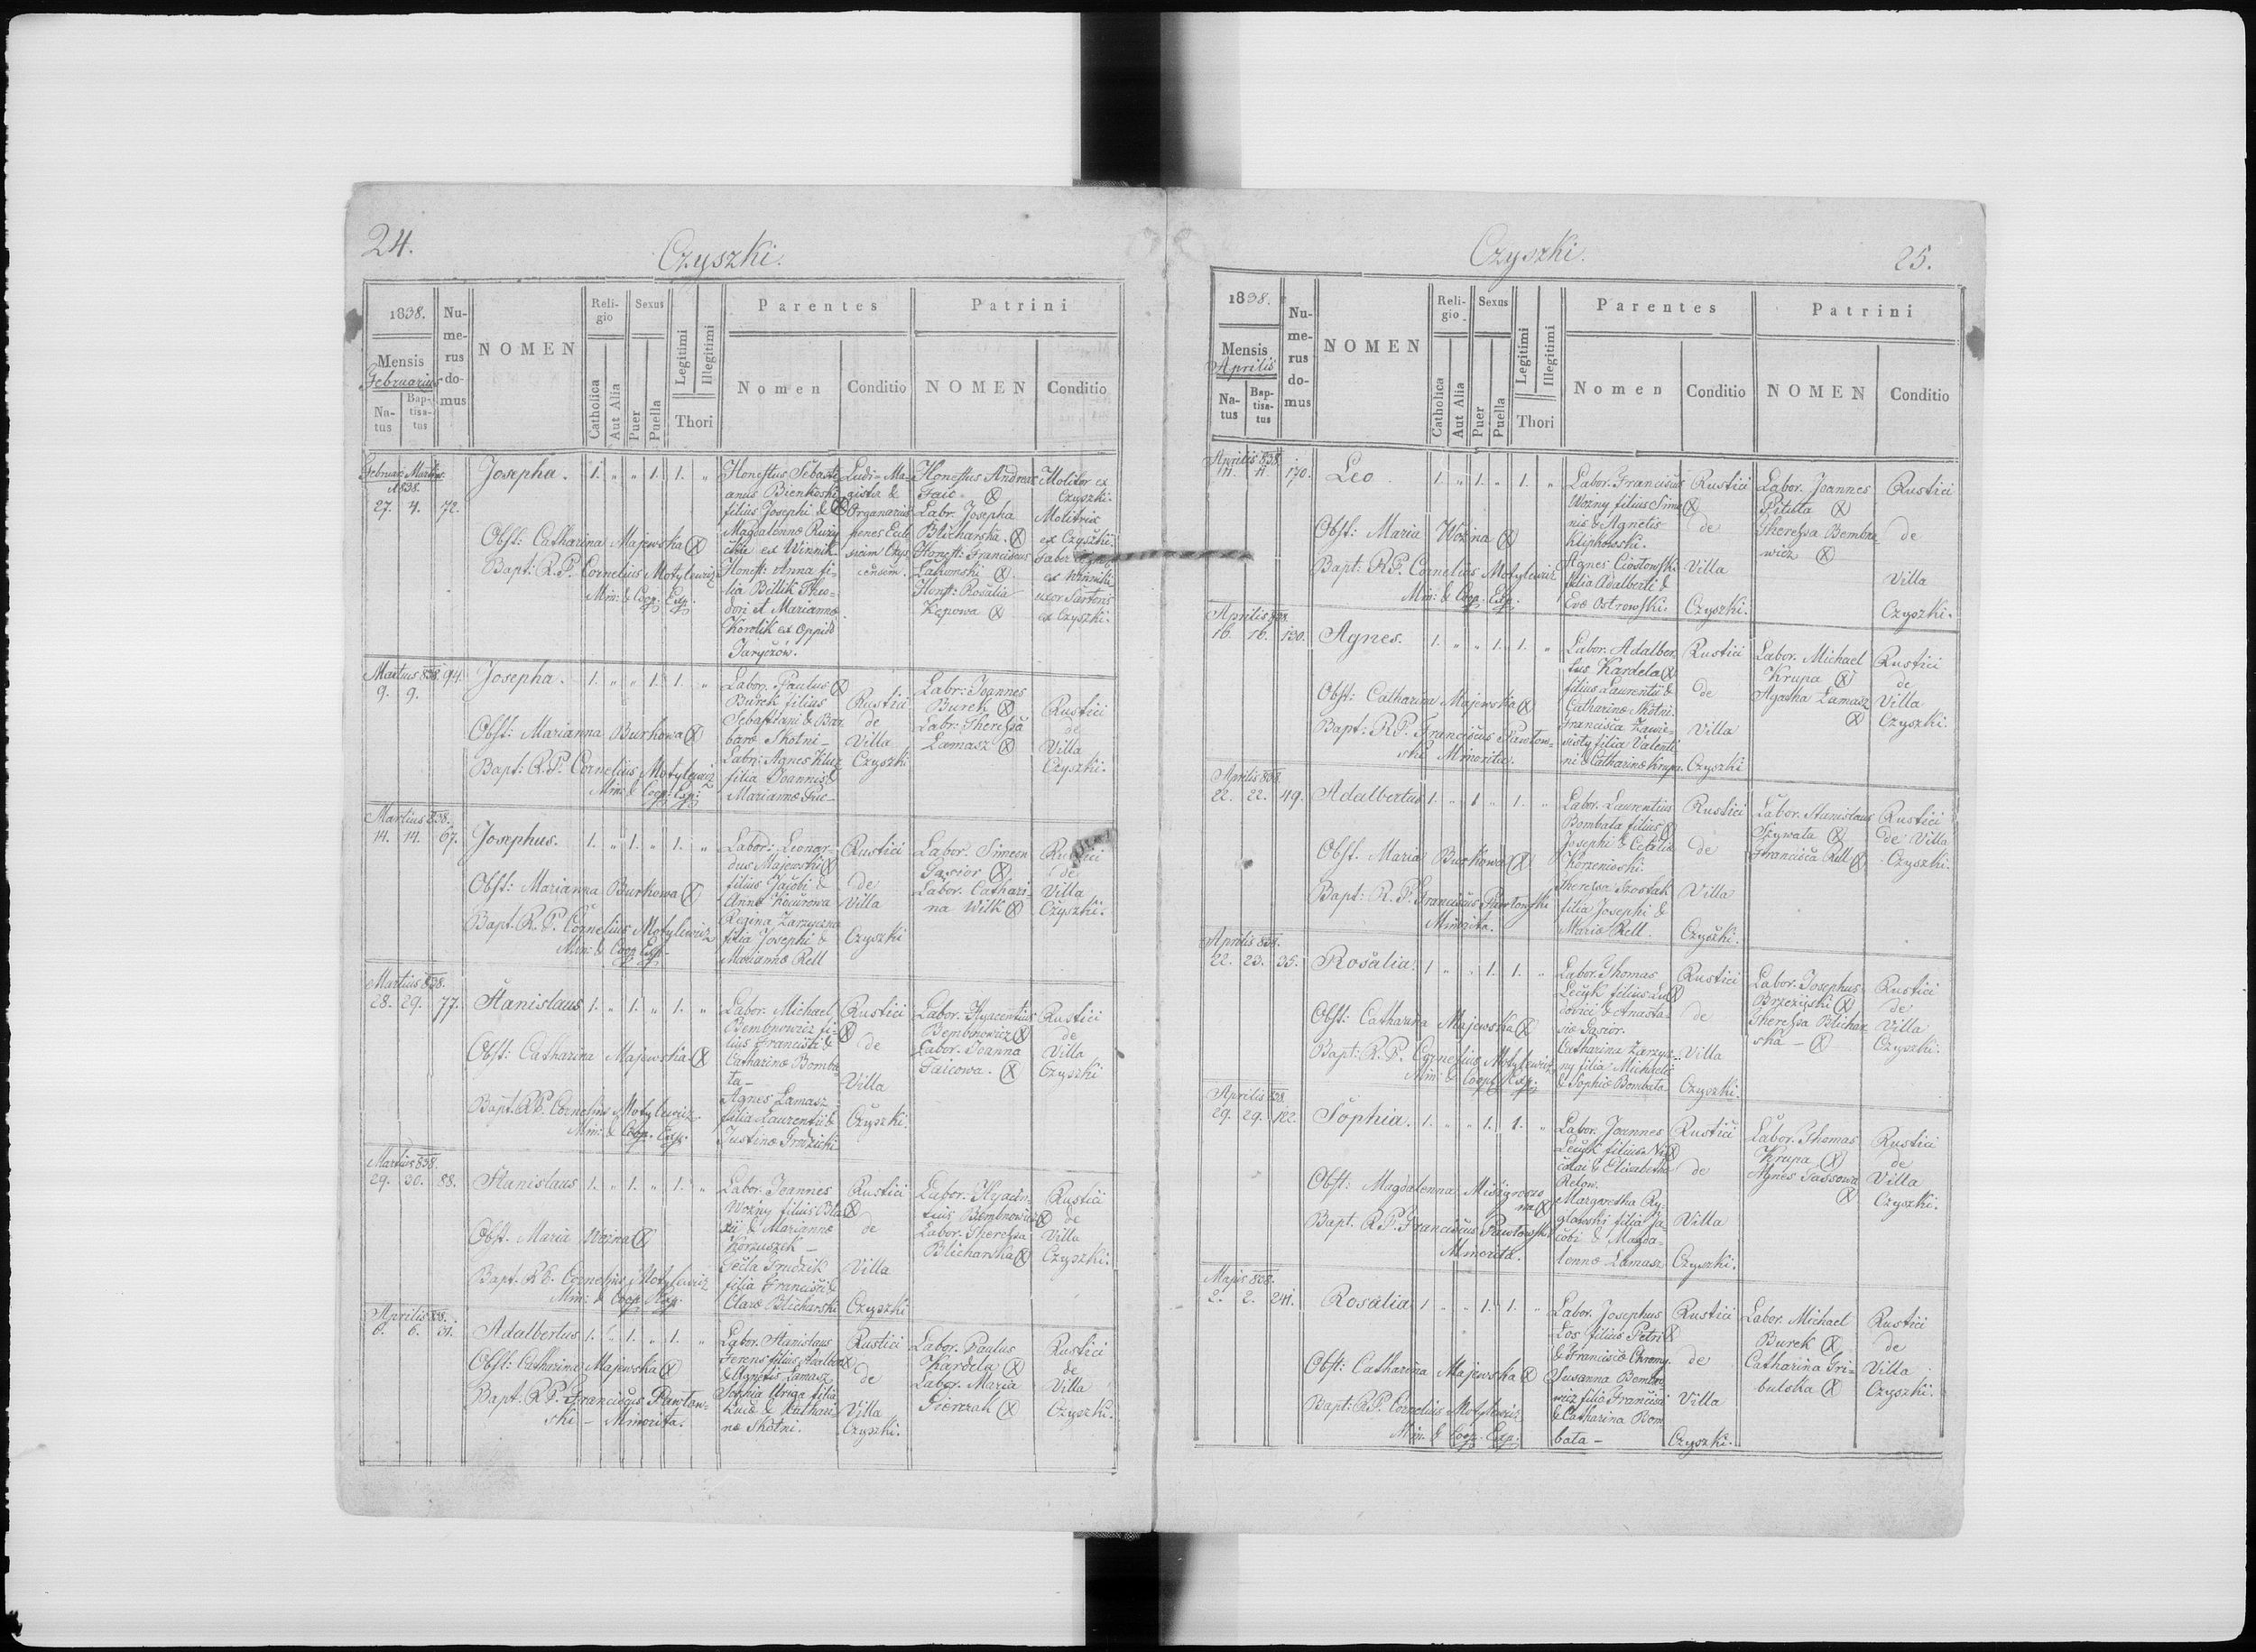 24.
Czyszki.
1838.
Mensis
Februarius
Na-
tus
Bap-
tisa-
tus
Nu-
me-
rus
do-
mus
NOMEN
Reli-
gio
Catholica
Aut Alia
Sexus
Puer
Puella
Legitimi
Illegitimi
Thori
Parentes
Nomen
Conditio
Patrini
NOMEN
Conditio
Februar. Martius
1838.
27. 4. 72.
Josepha. 1. " " 1. 1. "
Obst: Catharina Majewska (X)
Bapt: R.P. Cornelius Motylewicz
Min: & Coop. Exp.
Honestus Sebasti-
anus Bienkoski
filius Josephi & (X)
Magdalenæ
ex Winnik
Honest: Anna fi-
lia Bellik Theo-
dori et Mariannæ
Korolik ex Oppido
Jaryczow.
Ludi-Ma-
gister &
Organarius
penes Eccle
siam Czys
censem.
Honestus Andreas
Faic (X)
Labr. Josepha
Blicharska. (X)
Honest: Franciscus
(X)
Honst: Rosalia
Kepowa (X)
Molitor ex
Czyszki.
Molitrix
ex Czyszki.
Faber
ex Winniki
uxor Sartoris
ex Czyszki.
Martius 838. 94.
9. 9.
Josepha. 1. " " 1. 1. "
Obst: Marianna Burkowa (X)
Bapt: R.P. Cornelius Motylewicz
Min: & Coop: Exp:
Labor. Paulus (X)
Burek filius
Sebastiani & Bar
baræ Skotni-
Labr: Agnes Kluz
filia Joannis &
Mariannæ
Rustici
de
Villa
Czyszki
Labr: Joannes
Burek (X)
Labr: Theressa
Lamasz (X)
Rustici
de
Villa
Czyszki.
Martius 838.
14. 14. 67.
Josephus. 1. " 1. " 1. "
Obst: Marianna Burkowa (X)
Bapt. R.P. Cornelius Motylewicz
Min: & Coop Exp.
Labor: Leonar-
dus Majewski (X)
filius Jacobi &
Annæ Kocurowa
Regina Zarzyczna
filia Josephi &
Mariannæ Rell
Rustici
de
Villa
Czyszki
Labor. Simeon
Gasior (X)
Labor. Cathari-
na Wilk (X)
Rustici
de
Villa
Czyszki.
Martius 838.
28. 29. 77.
Stanislaus 1. " 1. " 1. "
Obst: Catharina Majewska (X)
Bapt. R.P. Cornelius Motylewicz
Min: & Coop. Exp.
Labor. Michael
Bembnowicz fi- (X)
lius Francisci &
Catharinæ Bomba-
ta-
Agnes Lamasz
filia Laurentii &
Justinæ Grodzicki
Rustici
de
Villa
Czyszki.
Labor. Hyacentius
Bembnowicz (X)
Labor. Joanna
Faicowa. (X)
Rustici
de
Villa
Czyszki
Martius 838.
29. 30. 88.
Stanislaus 1. " 1. " 1. "
Obst. Maria Wozna (X)
Bapt. R.P. Cornelius Motylewicz
Min: & Coop. Exp.
Labor. Joannes
Wozny filius Bla (X)
sii & Mariannæ
Korzuszek -
Tecla Trudzik
filia Francisci &
Claræ Blicharski
Rustici
de
Villa
Czyszki
Labor. Hyacin-
tius Bembnowicz (X)
Labor. Theressa
Blicharska (X)
Rustici
de
Villa
Czyszki.
Aprilis 838.
6. 6. 31.
Adalbertus 1. " 1. " 1. "
Obst: Catharina Majewska (X)
Bapt. R.P. Franciscus Pawlow-
ski - Minorita.
Labor. Stanislaus
Ferens filius Adalber (X)
& Agnetis Lamasz
Sophia Uriga filia
Lucæ & Cathari-
næ Skotni.
Rustici
de
Villa
Czyszki.
Labor. Paulus
Kardela (X)
Labor. Maria
Pierczak (X)
Rustici
de
Villa
Czyszki.
Czyszki.
25.
1838.
Mensis
Aprilis
Na-
tus
Bap-
tisa-
tus
Nu-
me-
rus
do-
mus
NOMEN
Reli-
gio
Catholica
Aut Alia
Sexus
Puer
Puella
Legitimi
Illegitimi
Thori
Parentes
Nomen
Conditio
Patrini
NOMEN
Conditio
Aprilis 838.
11. 11. 170.
Leo. 1. " 1. " 1. "
Obst: Maria Wozna (X)
Bapt: R.P. Cornelius Motylewicz
Min: & Coop. Exp:
Labor. Franciscus
Wozny filius Simo (X)
nis & Agnetis
Klipkowski.
Agnes Ciostowski
filia Adalberti &
Evæ Ostrowski.
Rustici
de
Villa
Czyszki.
Labor. Joannes
Pituta (X)
Theressa Bembno-
wicz (X)
Rustici
de
Villa
Czyszki.
Aprilis 838.
16. 16. 130.
Agnes. 1. " " 1. 1. "
Obst: Catharina Majewska (X)
Bapt: R.P. Franciscus Pawlow-
ski Minorita.
Labor. Adalber
tus Kardela (X)
filius Laurentii &
Catharinæ Skotni.
Francisca Zawi-
sisty filia Valenti
ni & Catharinæ Krupa.
Rustici
de
Villa
Czyszki
Labor. Michael
Krupa (X)
Agatha Lamasz
(X)
Rustici
de
Villa
Czyszki.
Aprilis 838.
22. 22. 49.
Adalbertus 1. " 1 " 1. "
Obst. Maria Burkowa (X)
Bapt: R.P. Franciscus Pawlowski
Minorita.
Labor. Laurentius
Bombata filius (X)
Josephi & Cecilia
Korzeniowski.
Theressa Szostak
filia Josephi &
Mariæ Rell.
Rustici
de
Villa
Czyszki.
Labor. Stanislaus
Szywata (X)
Francisca Rell (X)
Rustici
de Villa
Czyszki.
Aprilis 838.
22. 23. 35.
Rosalia. 1 " " 1. 1. "
Obst: Catharina Majewska (X)
Bapt: R.P. Cornelius Motylewicz
Min: & Coop. Exp:
Labor. Thomas
Lecyk filius Lu (X)
dovici & Anasta-
siæ Gasior.
Catharina Zarzycz-
ny filia Michaelis
& Sophiæ Bombata
Rustici
de
Villa
Czyszki.
Labor. Josephus
Brzeziski (X)
Theressa Blichar
ska - (X)
Rustici
de
Villa
Czyszki.
Aprilis 838.
29. 29. 182.
Sophia. 1. " " 1. 1. "
Obst: Magdalenna Miszgroszo
na (X)
Bapt. R.P. Franciscus Pawlowski
Minorita.
Labor. Joannes
Lecyk filius Ni (X)
colai & Elisabetha
Margaretha Ry-
glowski filia Ja-
cobi & Magda-
lennæ Lamasz
Rustici
de
Villa
Czyszki.
Labor. Thomas
Krupa (X)
Agnes Sassowa
(X)
Rustici
de
Villa
Czyszki.
Majus 838.
2. 2. 241.
Rosalia 1 " " 1. 1. "
Obst: Catharina Majewska (X)
Bapt: R.P. Cornelius Motylewicz
Min. & Coop. Exp:
Labor. Josephus
Los filius Petri (X)
& Franciscæ Chromy.
Susanna Bembno
wicz filia Francisci
& Catharina Bom
bata -
Rustici
de
Villa
Czyszki.
Labor. Michael
Burek (X)
Catharina Gri-
bulska (X)
Rustici
de
Villa
Czyszki.